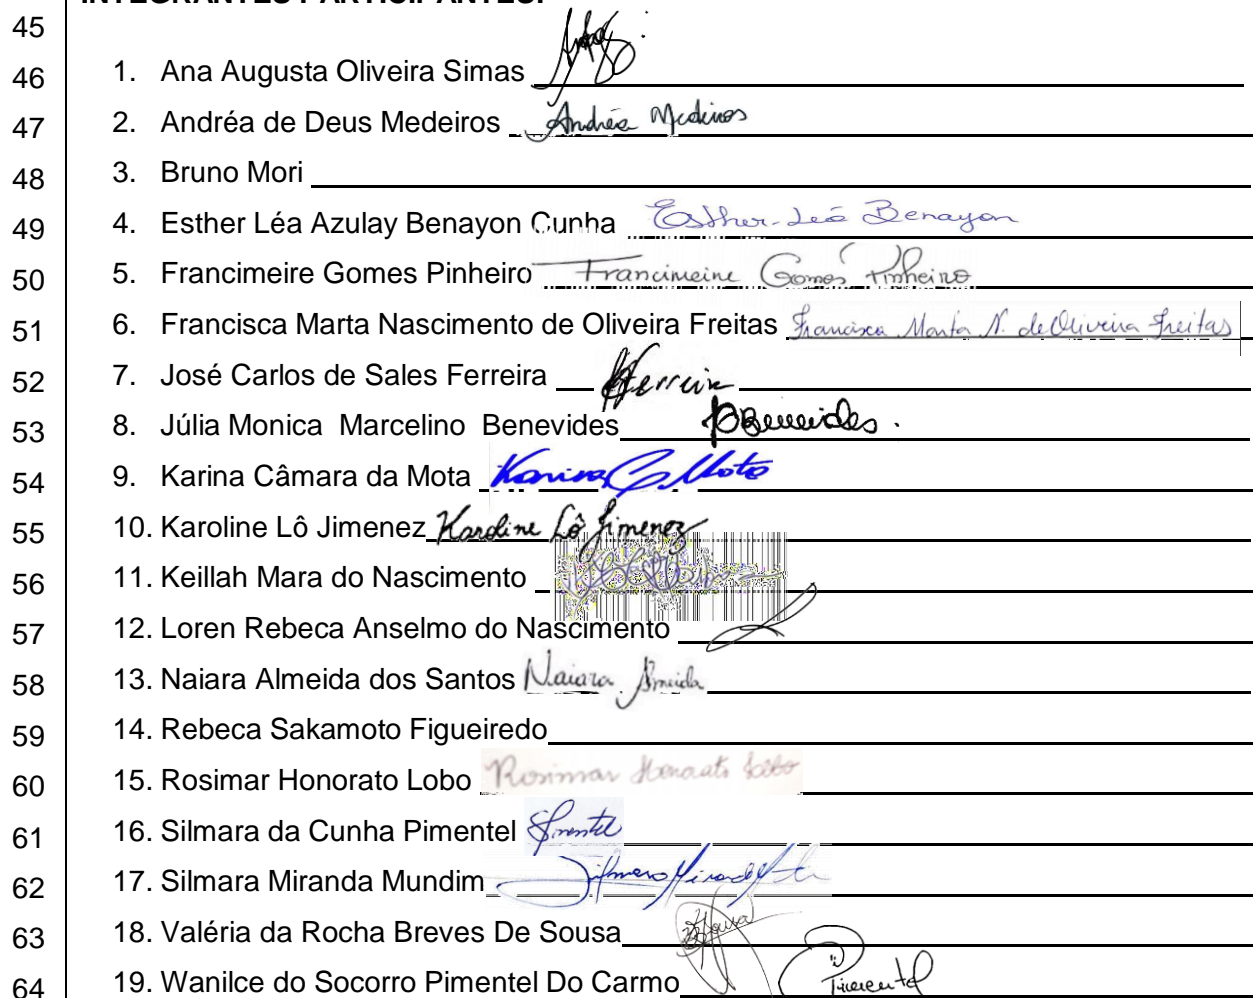 INTEGRANTES PARTICIPANTES:
45
46 1. Ana Augusta Oliveira Simas
47 2. Andréa de Deus Medeiros Andréa Medeiros
48 3. Bruno Mori
49 4. Esther Léa Azulay Benayon Cunha Esther Léa Benayon
50 5. Francimeire Gomes Pinheiro Francimeire Gomes Pinheiro
51 6. Francisca Marta Nascimento de Oliveira Freitas Francisca Marta N. de Oliveira Freitas
52 7. José Carlos de Sales Ferreira Ferreira
53 8. Júlia Monica Marcelino Benevides Benevides.
54 9. Karina Câmara da Mota Karina C Mota
55 10. Karoline Lô Jimenez Karoline Lô Jimenez
56 11. Keillah Mara do Nascimento
57 12. Loren Rebeca Anselmo do Nascimento
58 13. Naiara Almeida dos Santos Naiara Almeida
59 14. Rebeca Sakamoto Figueiredo
60 15. Rosimar Honorato Lobo Rosimar Honorato Lobo
61 16. Silmara da Cunha Pimentel Pimentel
62 17. Silmara Miranda Mundim
63 18. Valéria da Rocha Breves De Sousa Sousa
64 19. Wanilce do Socorro Pimentel Do Carmo Pimentel